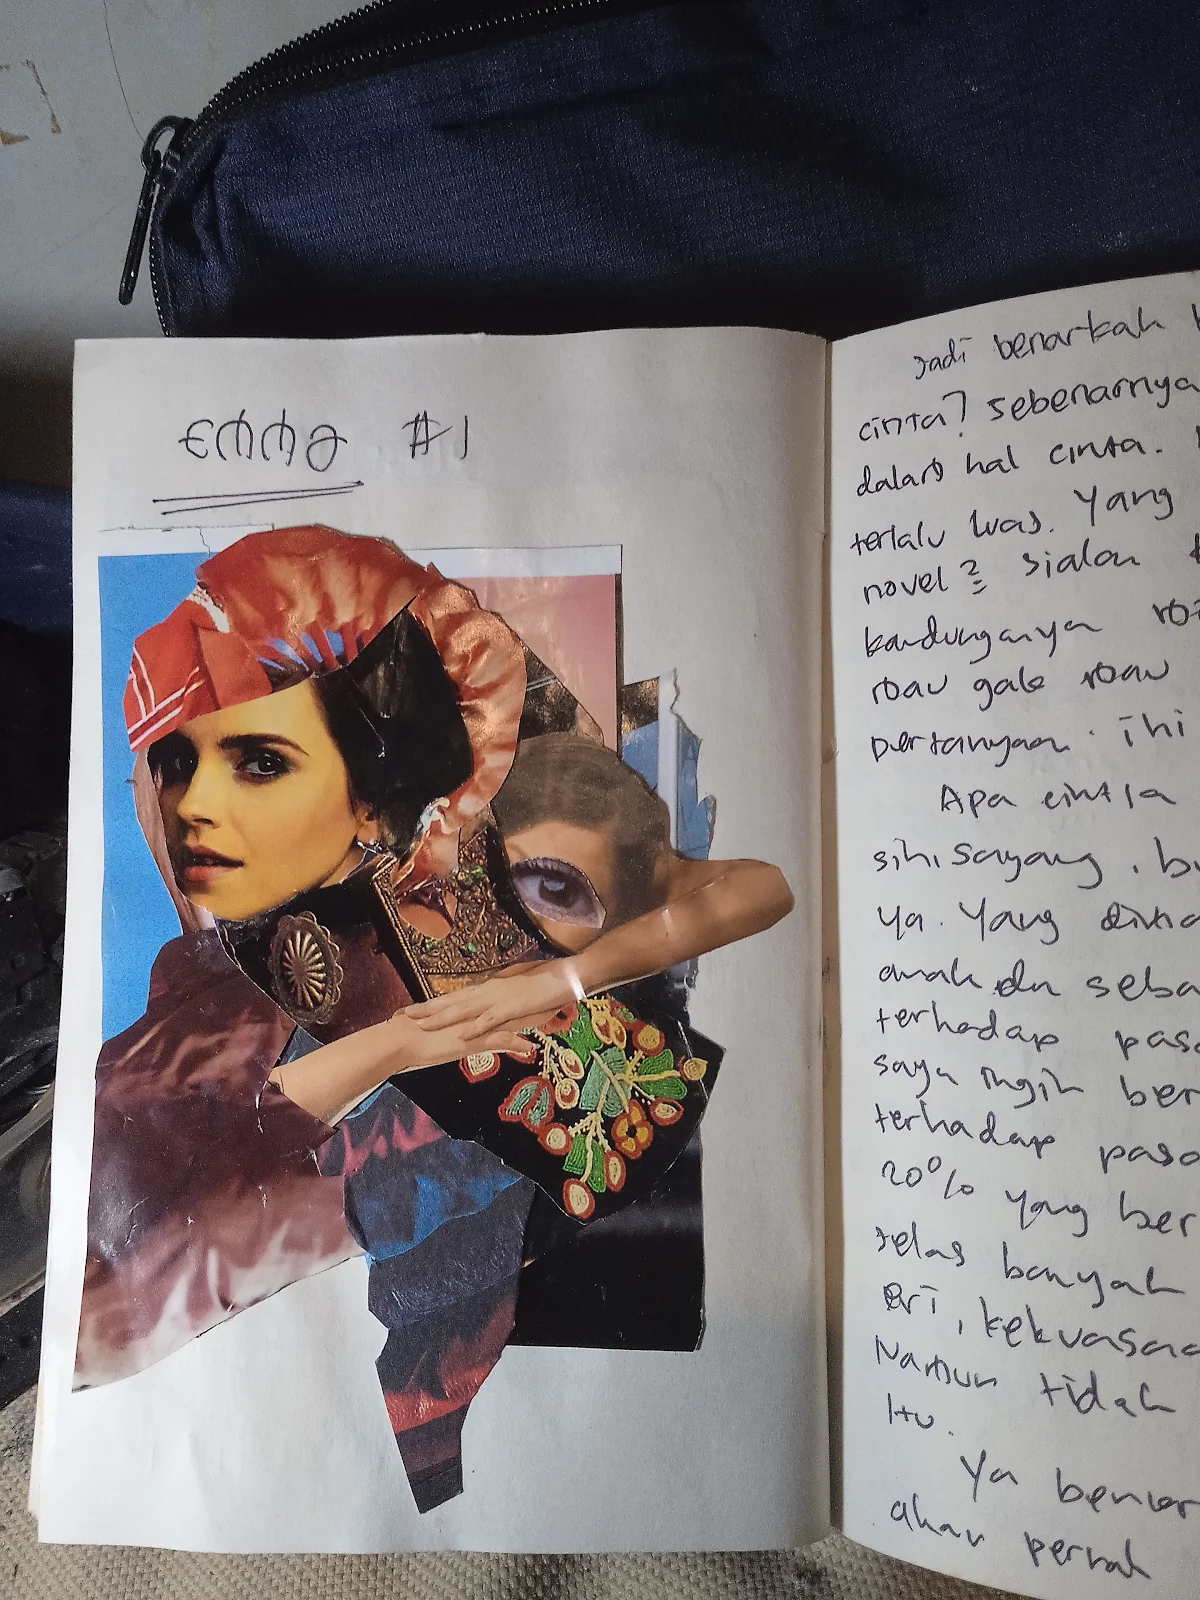 emma #1
Jadi benarkah
cinta? sebenarnya
dalam hal cinta.
terlalu luas. Yang
novel? sialan
kandungannya
rbau gale rbau
pertanyaan. ini
Apa cinta
sih, sayang. bu
ya. Yang
anak dn seba
terhadap pasa
saya ingin ber
terhadap pasa
20% yang ber
jelas banyak
Eri, kekuasaa
Namun tidak
itu.
Ya benar
akan pernah